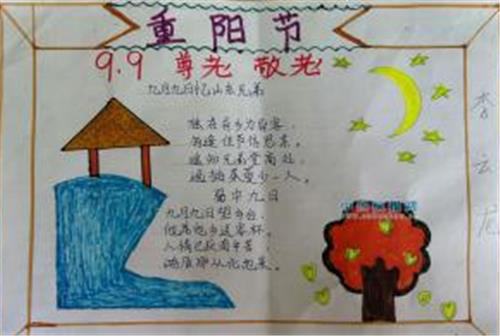 重阳节
9.9 尊老 敬老
九月九日忆山东兄弟
独在异乡为异客,
每逢佳节倍思亲。
遥知兄弟登高处,
遍插茱萸少一人。
蜀中九日
九月九日望乡台,
他席他乡送客杯。
人情已厌南中苦,
鸿雁那从北地来。
李云龙